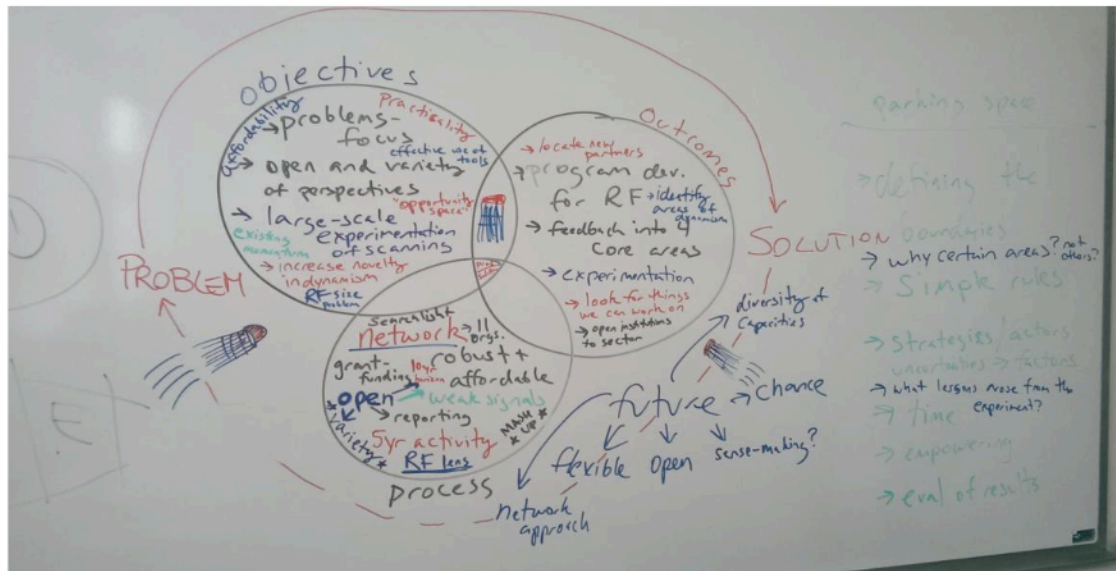 Objectives
affordability
Practicality
→ problems-
focus
effective use of
tools
→ open and variety
of perspectives
"opportunity
space"
→ large-scale
experimentation
of scanning
existing
momentum
→ increase novelty
in dynamism
RF-size
problem
Outcomes
→ locate new
partners
→ program dev.
for RF
→ identify
areas of
dynamism
→ feedback into 4
core areas
→ experimentation
→ look for things
we can work on
→ open institutions
to sector
searchlight
network → 11
orgs.
grant-
funding
10yr
horizon
robust +
affordable
open
→ weak signals
→ reporting
*variety*
5yr activity
*MASH
UP*
RF lens
process
PROBLEM
SOLUTION
diversity of
capacities
future → Chance
flexible
open
sense-making?
network
approach
parking space
→ defining the
boundries
→ why certain areas? not
others?
→ Simple rules
→ Strategies/actors
uncertainties → factors
→ what lessons arose from the
experiment?
→ time
→ empowering
→ eval of results
E